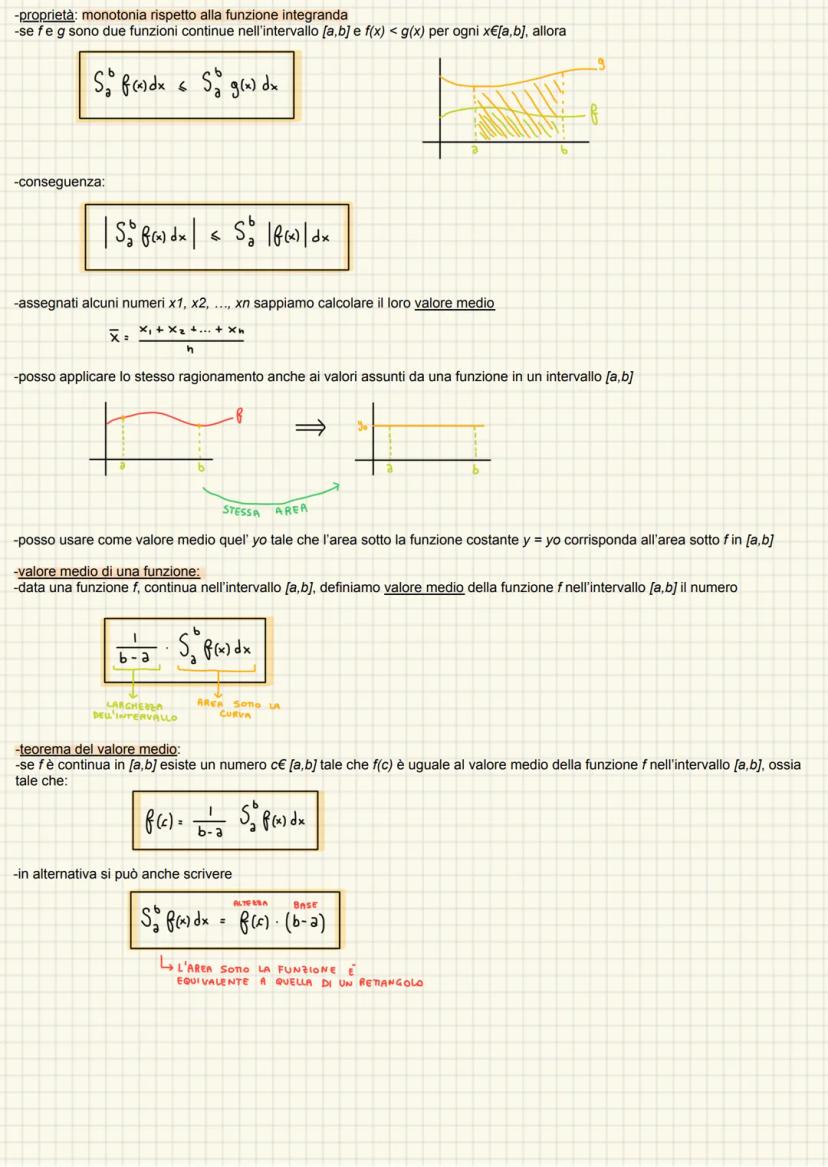 -proprietà: monotonia rispetto alla funzione integranda
-se f e g sono due funzioni continue nell'intervallo [a,b] e f(x) < g(x) per ogni x€[a,b], allora
Sₐᵇ f(x) dx ≤ Sₐᵇ g(x) dx
g
f
a b
-conseguenza:
|Sₐᵇ f(x) dx| ≤ Sₐᵇ |f(x)| dx
-assegnati alcuni numeri x1, x2, …, xn sappiamo calcolare il loro valore medio
x̄ = x₁ + x₂ + ... + xn
n
-posso applicare lo stesso ragionamento anche ai valori assunti da una funzione in un intervallo [a,b]
f ⟹ yo
a b a b
STESSA AREA
-posso usare come valore medio quel' yo tale che l'area sotto la funzione costante y = yo corrisponda all'area sotto f in [a,b]
-valore medio di una funzione:
-data una funzione f, continua nell'intervallo [a,b], definiamo valore medio della funzione f nell'intervallo [a,b] il numero
1/(b-a) · Sₐᵇ f(x) dx
LARGHEZZA DELL'INTERVALLO
AREA SOTTO LA CURVA
-teorema del valore medio:
-se f è continua in [a,b] esiste un numero c€ [a,b] tale che f(c) è uguale al valore medio della funzione f nell'intervallo [a,b], ossia
tale che:
f(c) = 1/(b-a) Sₐᵇ f(x) dx
-in alternativa si può anche scrivere
ALTEZZA BASE
Sₐᵇ f(x) dx = f(c) · (b-a)
↳ L'AREA SOTTO LA FUNZIONE È
EQUIVALENTE A QUELLA DI UN RETTANGOLO